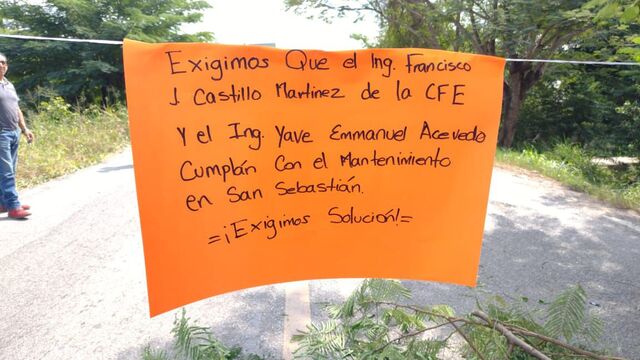 Exigimos Que el Ing. Francisco
J. Castillo Martinez de la CFE
Y el Ing. Yave Emmanuel Acevedo
Cumplán Con el Mantenimiento
en San Sebastián.
=¡Exigimos Solución!=